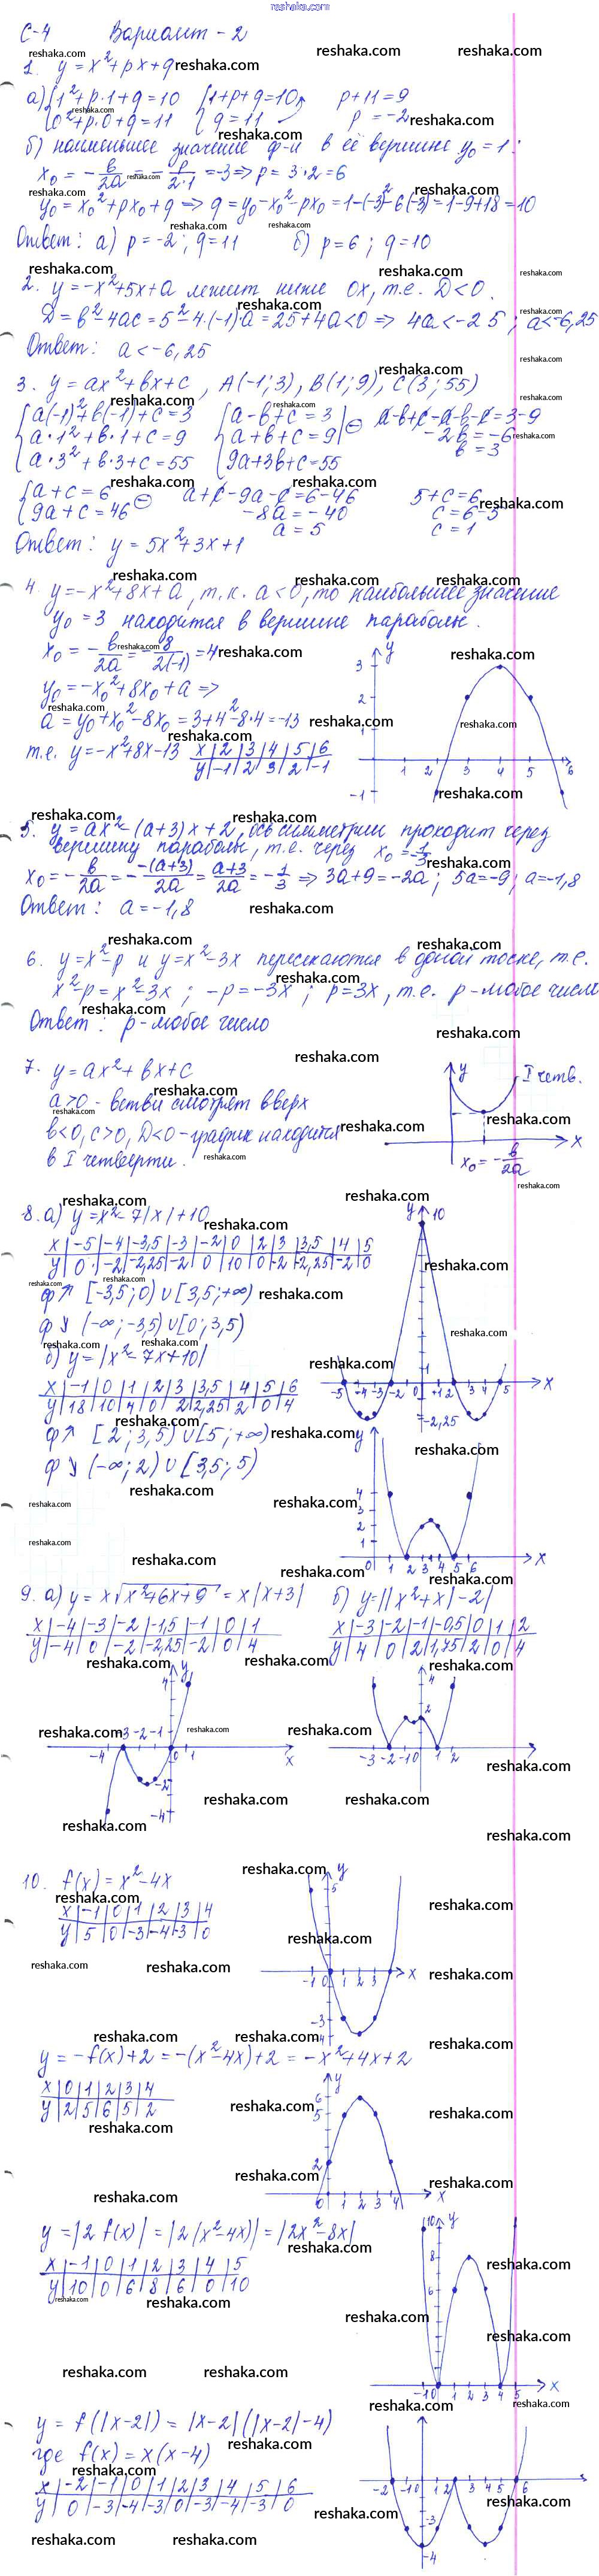 reshaka.com
С-4 Вариант - 2
1. y = x² + px + q
а) {1² + p·1 + q = 10 {1 + p + q = 10 p + 11 = 9
{0² + p·0 + q = 11 {q = 11 p = -2
б) наименьшее значение ф-и в её вершине y₀ = 1:
x₀ = -в/2a = -p/2·1 = -3 ⇒ p = 3·2 = 6
y₀ = x₀² + px₀ + q ⇒ q = y₀ - x₀² - px₀ = 1 - (-3)² - 6(-3) = 1 - 9 + 18 = 10
Ответ: а) p = -2; q = 11 б) p = 6; q = 10
2. y = -x² + 5x + a лежит ниже Ox, т.е. D < 0.
D = в² - 4ac = 5² - 4·(-1)·a = 25 + 4a < 0 ⇒ 4a < -25; a < -6,25
Ответ: a < -6,25
3. y = ax² + вx + c, A(-1; 3), B(1; 9), C(3; 55)
{a(-1)² + в(-1) + c = 3 {a - в + c = 3 a - в + c - a - в - c = 3 - 9
{a·1² + в·1 + c = 9 {a + в + c = 9 ⊖ -2в = -6
{a·3² + в·3 + c = 55 {9a + 3в + c = 55 в = 3
{a + c = 6 ⊖ a + c - 9a - c = 6 - 46 5 + c = 6
{9a + c = 46 -8a = -40 c = 6 - 5
a = 5 c = 1
Ответ: y = 5x² + 3x + 1
4. y = -x² + 8x + a, т.к. a < 0, то наибольшее значение
y₀ = 3 находится в вершине параболы.
x₀ = -в/2a = -8/2(-1) = 4
y₀ = -x₀² + 8x₀ + a ⇒
a = y₀ + x₀² - 8x₀ = 3 + 4² - 8·4 = -13
т.е. y = -x² + 8x - 13
x | 2 | 3 | 4 | 5 | 6
y | -1 | 2 | 3 | 2 | -1
5. y = ax² - (a+3)x + 2, ось симметрии проходит через
вершину параболы, т.е. через x₀ = -1/3
x₀ = -в/2a = -(-(a+3))/2a = (a+3)/2a = -1/3 ⇒ 3a + 9 = -2a; 5a = -9; a = -1,8
Ответ: a = -1,8
6. y = x² - p и y = x² - 3x пересекаются в одной точке, т.е.
x² - p = x² - 3x; -p = -3x; p = 3x, т.е. p - любое число
Ответ: p - любое число
7. y = ax² + вx + c
a > 0 - ветви смотрят вверх
в < 0, c > 0, D < 0 - график находится
в I четверти.
y I четв.
x
x₀ = -в/2a
8. а) y = x² - 7|x| + 10
x | -5 | -4 | -3,5 | -3 | -2 | 0 | 2 | 3 | 3,5 | 4 | 5
y | 0 | -2 | -2,25 | -2 | 0 | 10 | 0 | -2 | -2,25 | -2 | 0
ф ↗ [-3,5; 0) ∪ [3,5; +∞)
ф ↘ (-∞; -3,5) ∪ [0; 3,5)
б) y = |x² - 7x + 10|
x | -1 | 0 | 1 | 2 | 3 | 3,5 | 4 | 5 | 6
y | 18 | 10 | 4 | 0 | 2 | 2,25 | 2 | 0 | 4
ф ↗ [2; 3,5) ∪ [5; +∞)
ф ↘ (-∞; 2) ∪ [3,5; 5)
9. а) y = x√(x² + 6x + 9) = x|x + 3| б) y = ||x² + x| - 2|
x | -4 | -3 | -2 | -1,5 | -1 | 0 | 1
y | -4 | 0 | -2 | -2,25 | -2 | 0 | 4
x | -3 | -2 | -1 | -0,5 | 0 | 1 | 2
y | 4 | 0 | 2 | 1,75 | 2 | 0 | 4
10. f(x) = x² - 4x
x | -1 | 0 | 1 | 2 | 3 | 4
y | 5 | 0 | -3 | -4 | -3 | 0
y = -f(x) + 2 = -(x² - 4x) + 2 = -x² + 4x + 2
x | 0 | 1 | 2 | 3 | 4
y | 2 | 5 | 6 | 5 | 2
y = |2f(x)| = |2(x² - 4x)| = |2x² - 8x|
x | -1 | 0 | 1 | 2 | 3 | 4 | 5
y | 10 | 0 | 6 | 8 | 6 | 0 | 10
y = f(|x-2|) = |x-2|(|x-2| - 4)
где f(x) = x(x - 4)
x | -2 | -1 | 0 | 1 | 2 | 3 | 4 | 5 | 6
y | 0 | -3 | -4 | -3 | 0 | -3 | -4 | -3 | 0